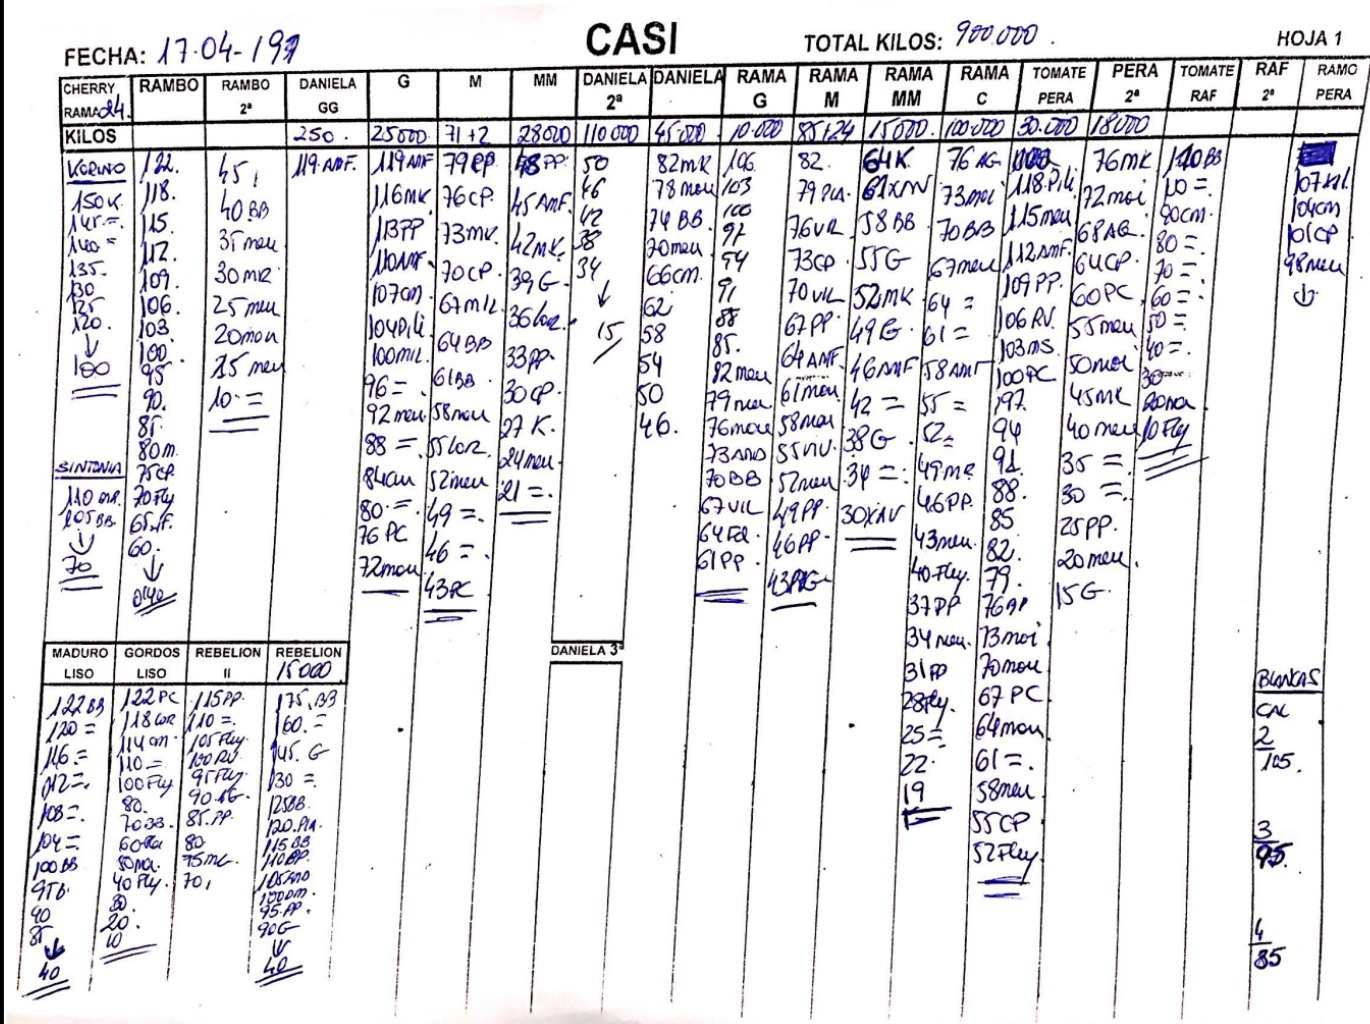 FECHA: 17-04-197
CASI
TOTAL KILOS: 900.000.
HOJA 1
CHERRY RAMA 24.
RAMBO
RAMBO 2ª
DANIELA GG
G
M
MM
DANIELA 2ª
DANIELA
RAMA G
RAMA M
RAMA MM
RAMA C
TOMATE PERA
PERA 2ª
TOMATE RAF
RAF 2ª
RAMO PERA
KILOS
250.
25000
71+2
28000
110000
45.000
10.000
85+24
15000.
100.000
30.000
18000
150K.
145.=
140=
135.
130
125
120.
↓
100
SINTONIA
105BB
↓
70
122.
118.
115.
112.
109.
106.
103.
100.
95
90.
85.
80m.
75CP
70Fly
60.
↓
45,
40BB
35meu
30MR
25meu
20mou
15meu
10.=
119.AMF.
119AMF
116MK
113PP
110AMF.
107cm
104Pili
100MIL.
96=.
92meu
88=.
84cm
80.=.
76PC
72mou
79PP.
76CP.
73MK.
70CP.
67MIL
64BB
61BB.
58meu
55LOR.
52meu
49=.
46=.
43PC
48PP.
45AMF.
42MK.
39G.
36LOR.
33PP.
30CP.
27K.
24meu.
21=.
50
46
42
38
34
↓
15
82MK
78meu
74BB
70meu
66cm.
62
58
54
50
46.
106
103
100
97
94
91
88
85.
82meu
79meu
76mou
73AND
70BB
67VIL
61PP.
82.
79PIA.
76VR
73CP
70VIL
67PP.
64AMF.
61mou
58mou
52meu
49PP.
46PP.
64K.
61XAV
58BB
55G
52MK
49G.
46AMF
42=
38G.
34=.
30XAV
76AG
73moi
70BB
67meu
64=
61=
58AMF
55=
52=
49MR
46PP.
43meu.
40Fly.
37PP
34meu.
31PP
28Fly.
25=
22.
19
118.Pili
115meu
112AMF.
109PP.
106RV.
103MS.
100PC
97.
94
91.
88.
85
82.
79.
76PP
73moi
70mou
67PC
64mou
61=.
58meu
55CP
52Fly.
76MK
72moi
68AG.
64CP.
60PC.
55meu
50moi
45MK
40meu
35=.
30=.
25PP.
20meu.
15G.
90cm.
80=
70=
60=.
50=
40=.
30
10Fly
104cm
101CP
98meu
↓
MADURO LISO
GORDOS LISO
REBELION II
REBELION 15000
DANIELA 3ª
122BB
120=
116=
112=.
108=.
104=.
100BB
90
85
↓
40
122PC
118LOR
114cm.
110=
100Fly
80.
70BB.
40Fly.
30.
20.
10
115PP.
110=.
105Fly.
100RV.
95Fly.
90.AG.
85.PP.
80
70,
175.BB
160.=
145.G
130=.
125BB.
120.PIA.
115BB
110PP.
105AND
95.PP.
90G
↓
40
BLANCAS
CAL
2
105.
3
95.
4
85